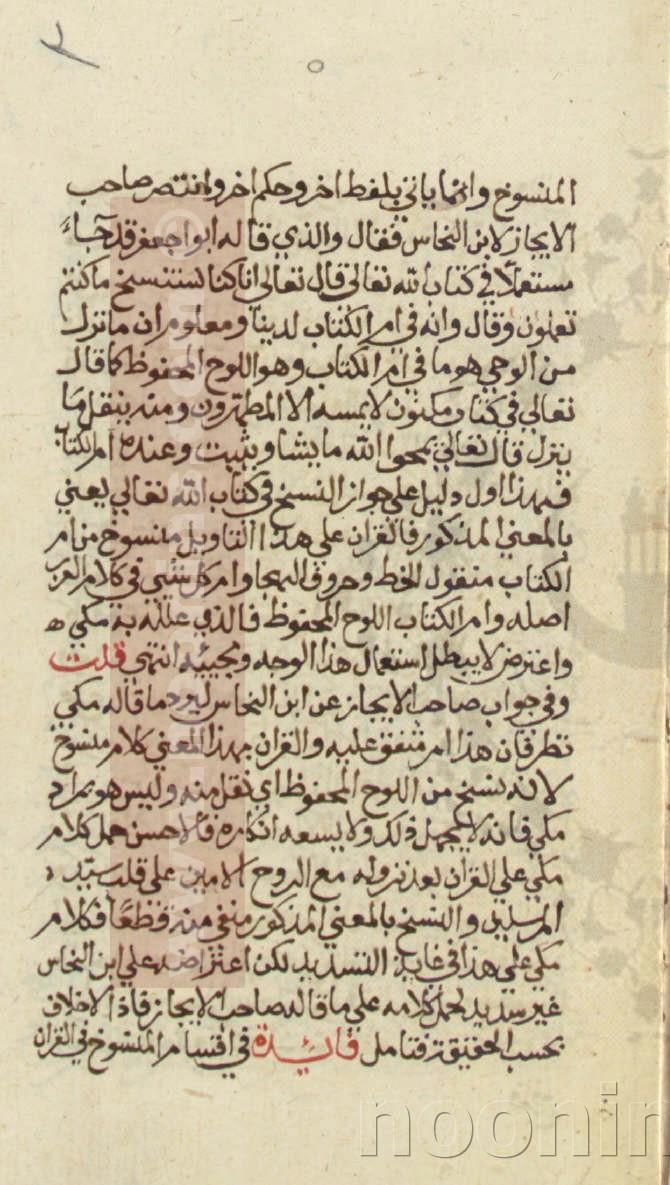 المنسوخ وانما ياتي بلفظ اخر وحكم اخر وانتصر صاحب
الايجاز لابن النحاس فقال والذي قاله ابو جعفر قد جاء
مستعملا في كتاب الله تعالى قال تعالى انا كنا نستنسخ ما كنتم
تعملون وقال وانه في ام الكتاب لدينا ومعلوم ان ما نزل
من الوحي هو ما في ام الكتاب وهو اللوح المحفوظ كما قال
تعالي في كتاب مكنون لا يمسه الا المطهرون ومنه ينقل ما
ينزل قال تعالي يمحوا الله ما يشا ويثبت وعنده ام الكتاب
فهذا اول دليل على جواز النسخ في كتاب الله تعالي يعني
بالمعني المذكور فالقران على هذا التاويل منسوخ من ام
الكتاب منقول الخط وحروف الهجا وام كل شي في كلام العرب
اصله وام الكتاب اللوح المحفوظ فالذي علله به مكي
واعترض لا يبطل استعمال هذا الوجه ومجيئه انتهى قلت
وفي جواب صاحب الايجاز عن ابن النحاس ليرد ما قاله مكي
نظر فان هذا امر متفق عليه والقران بهذا المعني كلام منسوخ
لانه نسخ من اللوح المحفوظ اي نقل منه وليس هو مراد
مكي فانه لا يجهل ذلك ولا يسعه انكاره فالاحسن حمل كلام
مكي علي القران بعد نزوله مع الروح الامين على قلب سيد
المرسلين والنسخ بالمعني المذكور منفي منه قطعا فكلام
مكي علي هذا في غاية التسديد لكن اعتراضه علي ابن النحاس
غير سديد لحمل كلامه علي ما قاله صاحب الايجاز فاذا لا خلاف
بحسب الحقيقة فتامل فائدة في اقسام المنسوخ في القران
noonin